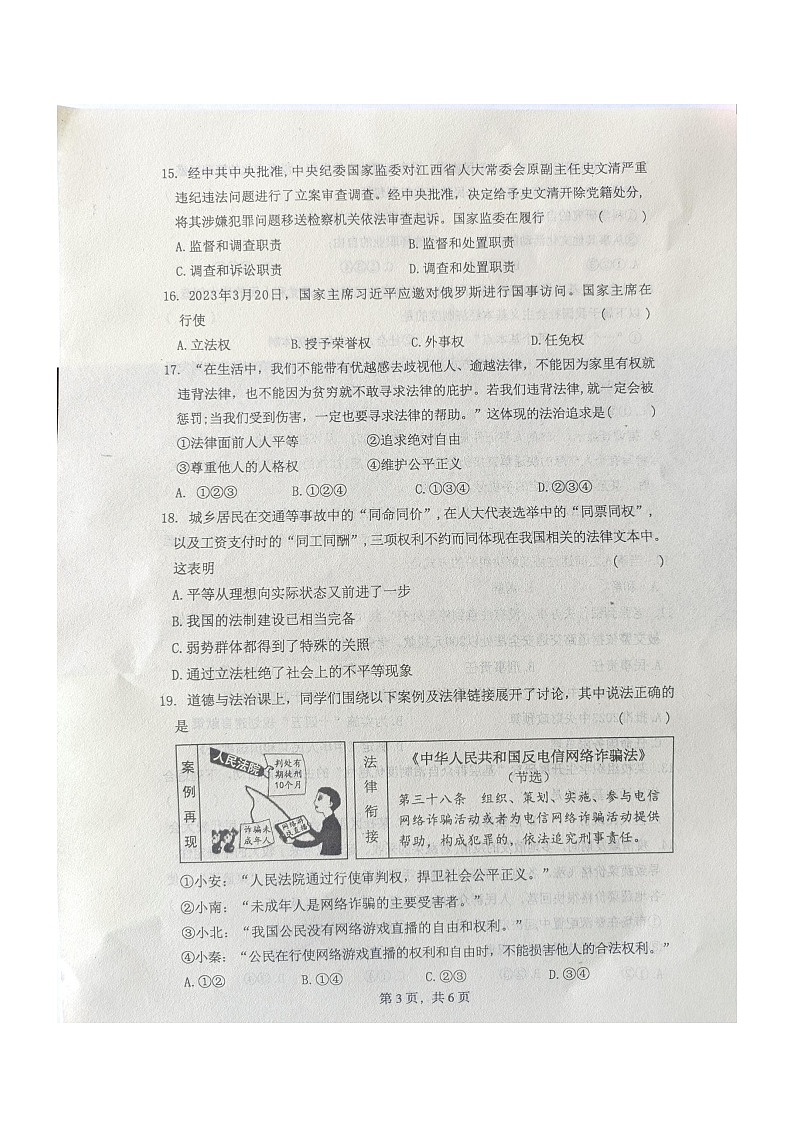 15. 经中共中央批准,中央纪委国家监委对江西省人大常委会原副主任史文清严重
违纪违法问题进行了立案审查调查。经中央批准，决定给予史文清开除党籍处分,
将其涉嫌犯罪问题移送检察机关依法审查起诉。国家监委在履行 ( )
A.监督和调查职责 B.监督和处置职责
C.调查和诉讼职责 D.调查和处置职责
16. 2023年3月20日，国家主席习近平应邀对俄罗斯进行国事访问。国家主席在
行使 ( )
A.立法权 B.授予荣誉权 C.外事权 D.任免权
17. “在生活中，我们不能带有优越感去歧视他人、逾越法律，不能因为家里有权就
违背法律，也不能因为贫穷就不敢寻求法律的庇护。若我们违背法律,就一定会被
惩罚;当我们受到伤害，一定也要寻求法律的帮助。”这体现的法治追求是( )
①法律面前人人平等 ②追求绝对自由
③尊重他人的人格权 ④维护公平正义
A. ①②③ B.①②④ C.①③④ D.②③④
18. 城乡居民在交通等事故中的“同命同价”,在人大代表选举中的“同票同权”,
以及工资支付时的“同工同酬”,三项权利不约而同体现在我国相关的法律文本中。
这表明 ( )
A.平等从理想向实际状态又前进了一步
B.我国的法制建设已相当完备
C.弱势群体都得到了特殊的关照
D.通过立法杜绝了社会上的不平等现象
19. 道德与法治课上，同学们围绕以下案例及法律链接展开了讨论，其中说法正确的
是 ( )
案例再现
人民法院
判处有
期徒刑
10个月
诈骗未
成年人
网络游
戏直播
法律衔接
《中华人民共和国反电信网络诈骗法》
(节选)
第三十八条 组织、策划、实施、参与电信
网络诈骗活动或者为电信网络诈骗活动提供
帮助，构成犯罪的，依法追究刑事责任。
①小安：“人民法院通过行使审判权，捍卫社会公平正义。”
②小南：“未成年人是网络诈骗的主要受害者。”
③小北：“我国公民没有网络游戏直播的自由和权利。”
④小秦：“公民在行使网络游戏直播的权利和自由时，不能损害他人的合法权利。”
A.①② B.①④ C.②③ D.③④
第 3 页，共 6 页